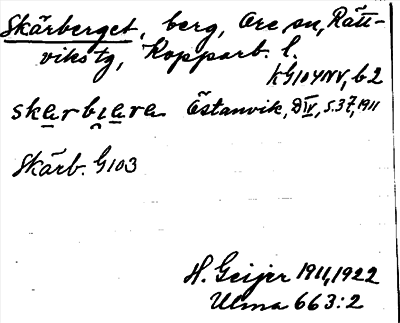 Skärberget, berg, Ore sn, Rätt-
viks tg, Kopparb. l.
KG104NV, b2
skɐrbɩɐrɐ Östanvik, DIV, s.37, 1911
Skärb. G103
H. Geijer 1911, 1922
Ulma 663:2